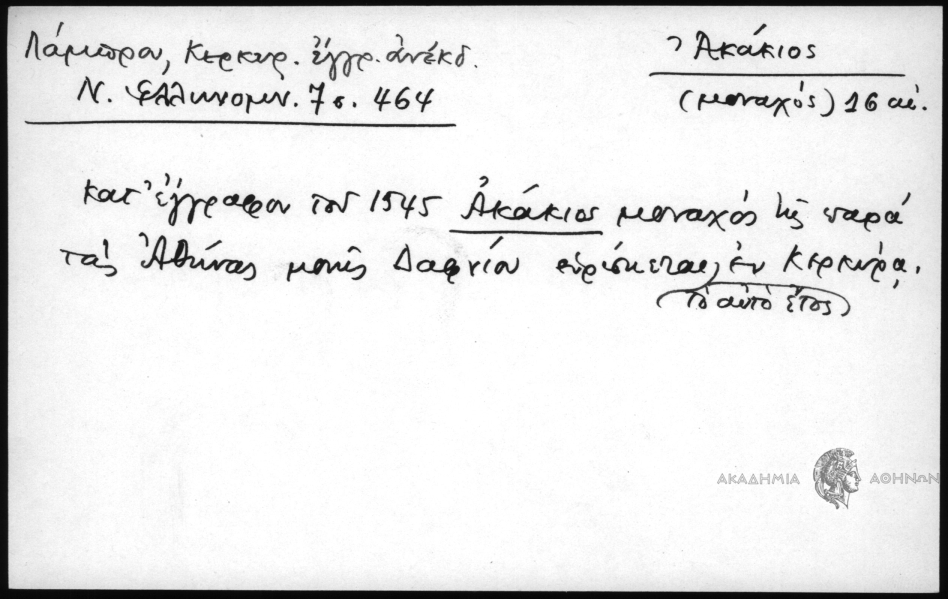 Λάμπρου, Κερκυρ. έγγρ. ἀνέκδ.
Ν. Ἑλληνομν. 7 σ. 464
Ἀκάκιος
(μοναχός) 16 αἰ.
κατ' ἔγγραφον τοῦ 1545 Ἀκάκιος μοναχός τῆς παρά
τάς Ἀθήνας μονῆς Δαφνίου εὑρίσκεται ἐν Κερκύρᾳ.
τὸ αὐτὸ ἔτος
ΑΚΑΔΗΜΙΑ ΑΘΗΝΩΝ